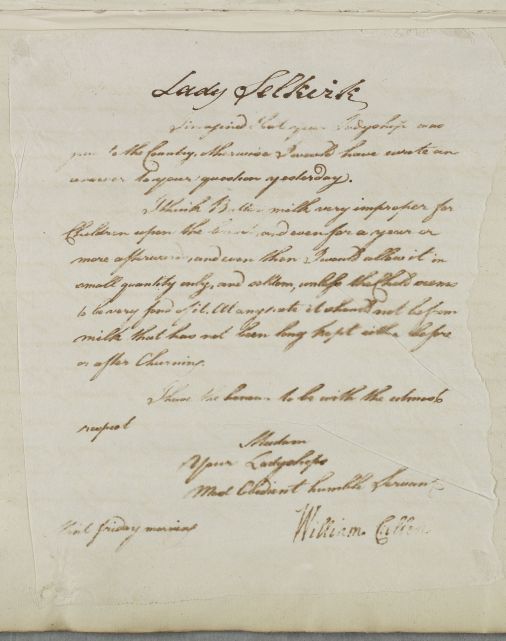 Lady Selkirk
I imagined that your Ladyship was
gone to the Country, otherwise I would have wrote an
answer to your question yesterday.
I think Butter milk very improper for
Children upon the and even for a year or
more afterwards, and even then I would allow it in
small quantity only, and seldom, unless the Child seems
to be very fond of it. At any rate it should not be from
milk that has not been long kept either before
or after Churning.
I have the honour to be with the utmost
respect
Madam
Your Ladyships
Most Obedient humble Servant
friday morning William Cullen